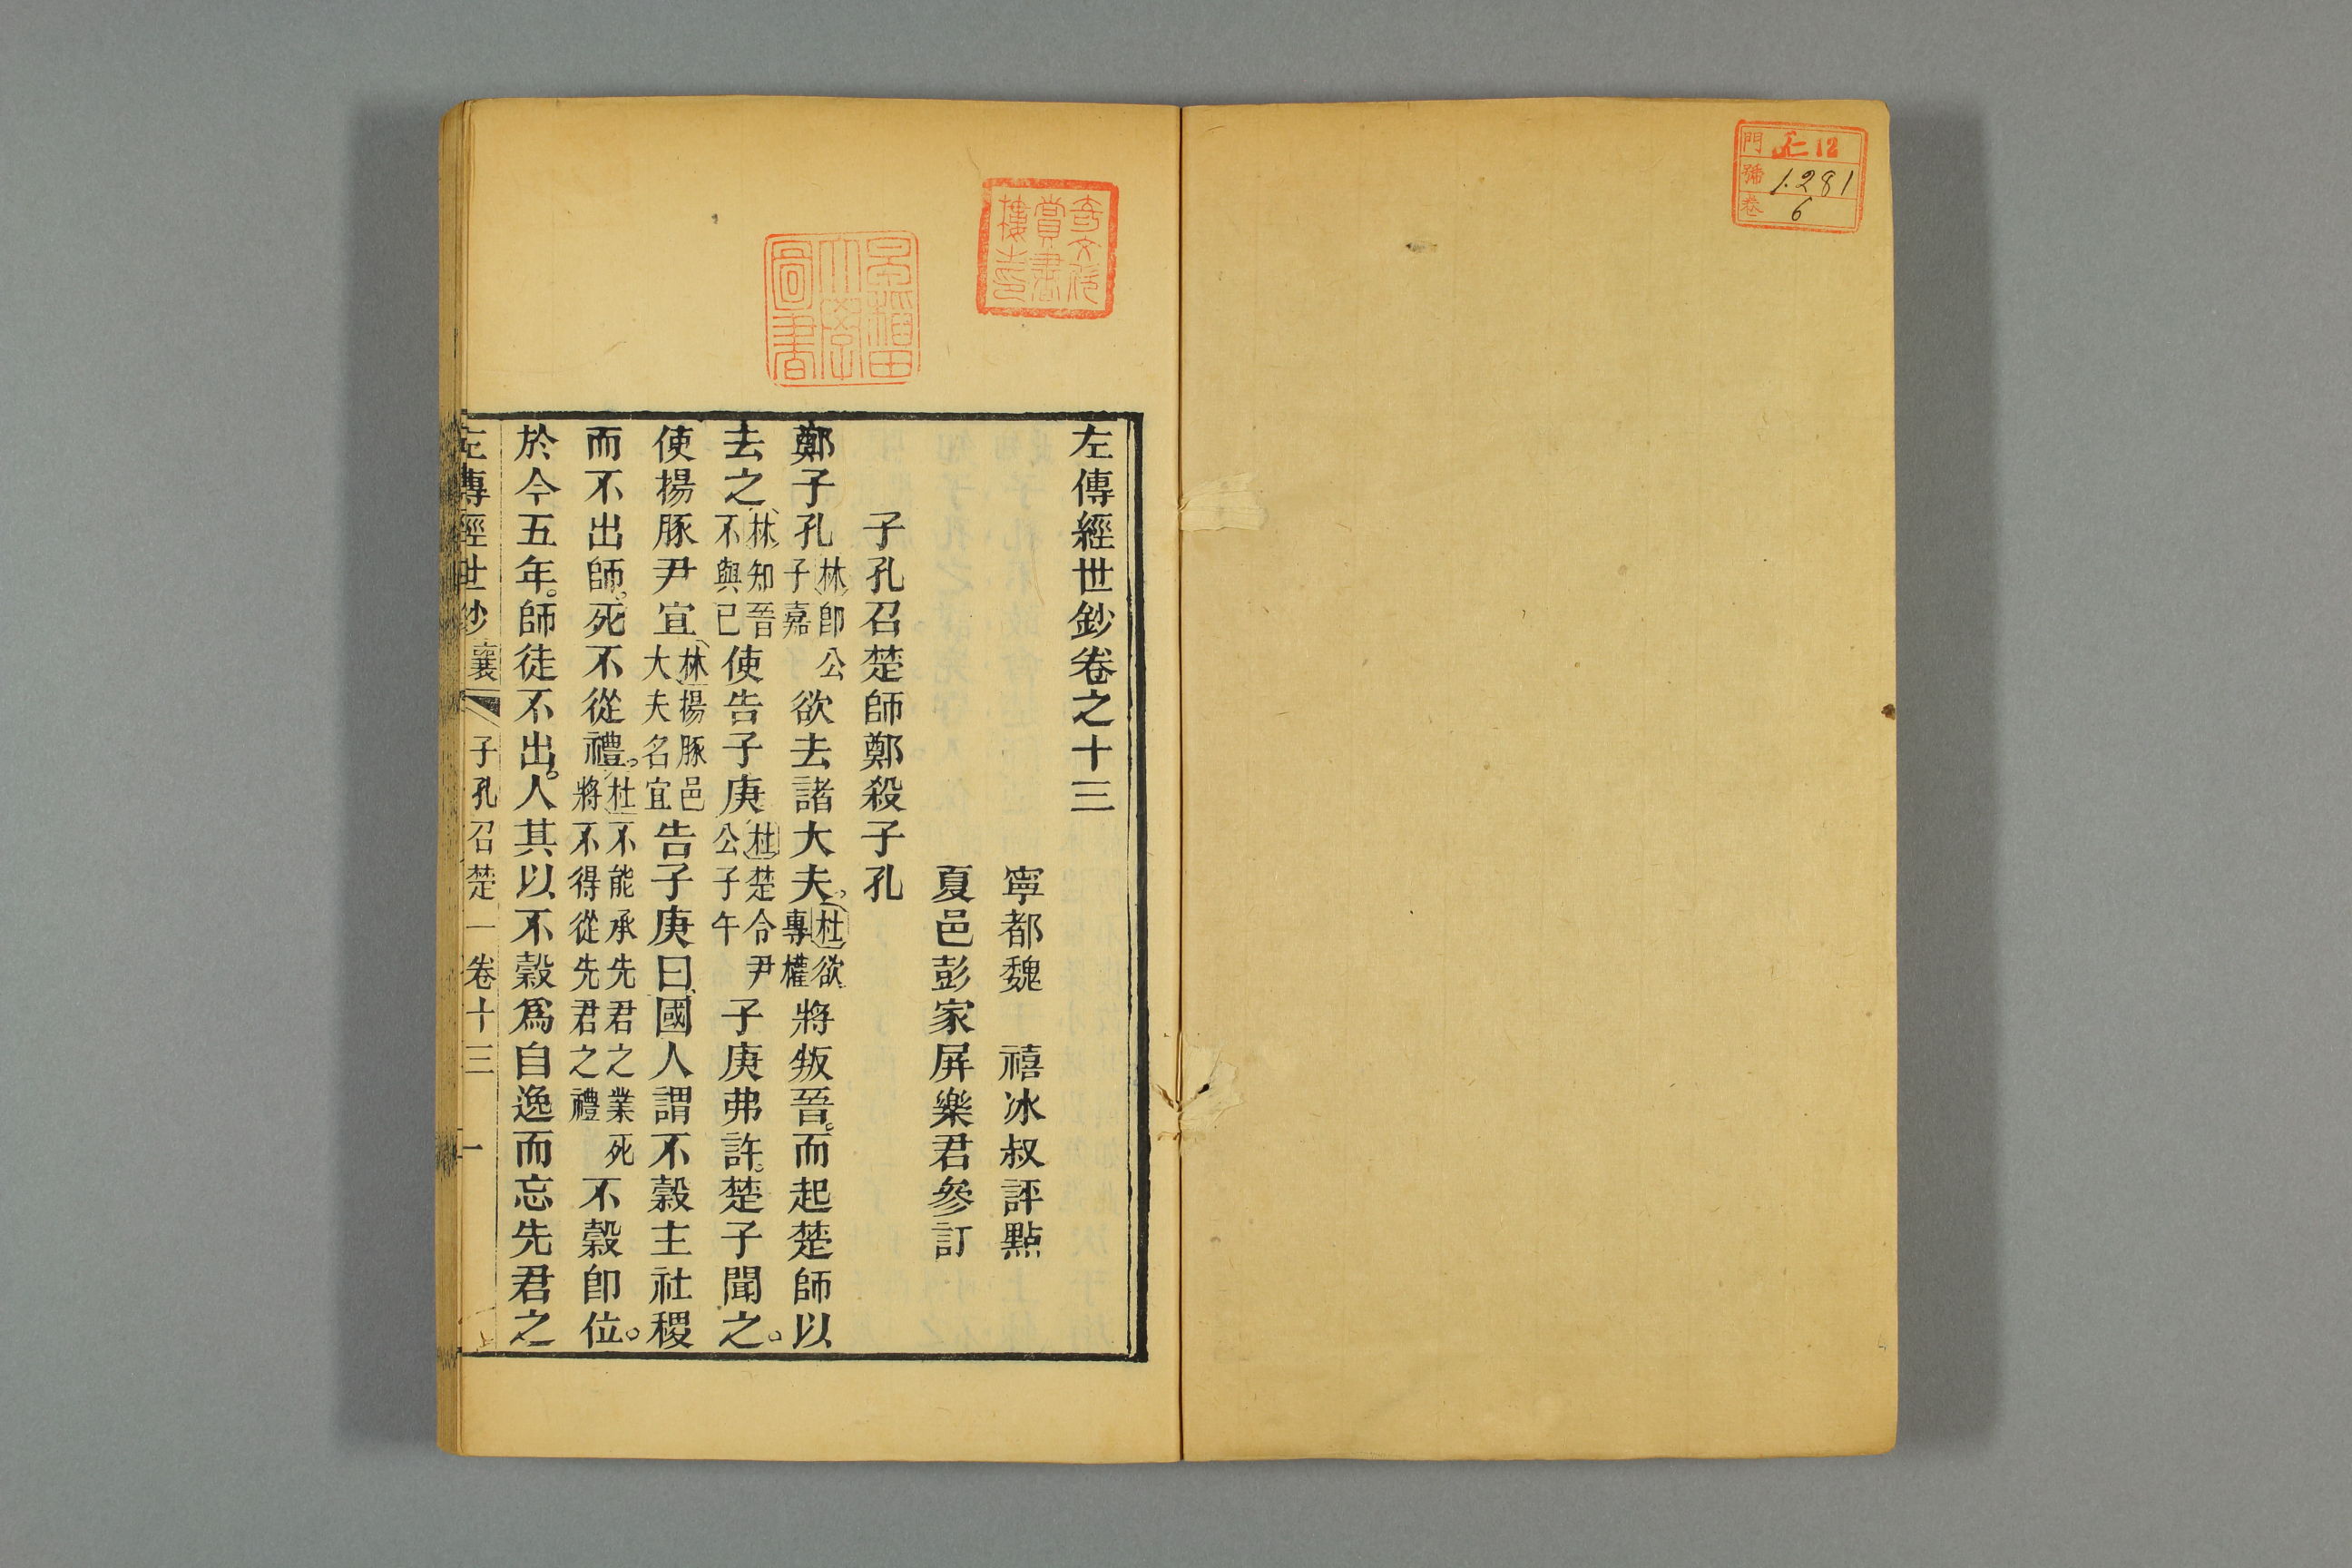 門 仁12
號 1.281
卷 6
奇文欣
賞書
樓印
早稻田
大學
圖書
左傳經世鈔卷之十三
寧都魏 禧冰叔評點
夏邑彭家屏樂君參訂
子孔召楚師鄭殺子孔
鄭子孔林卽公子嘉欲去諸大夫。杜欲專權將叛晉。而起楚師以
去之、林知晉不與已使告子庚、杜楚令尹公子午子庚弗許。楚子聞之。
使揚豚尹宜林揚豚邑大夫名宜告子庚曰、國人謂不穀主社稷
而不出師、死不從禮。杜不能承先君之業死將不得從先君之禮不穀卽位。
於今五年。師徒不出。人其以不穀爲自逸而忘先君之
左傳經世鈔 襄 子孔召楚一 卷十三 一